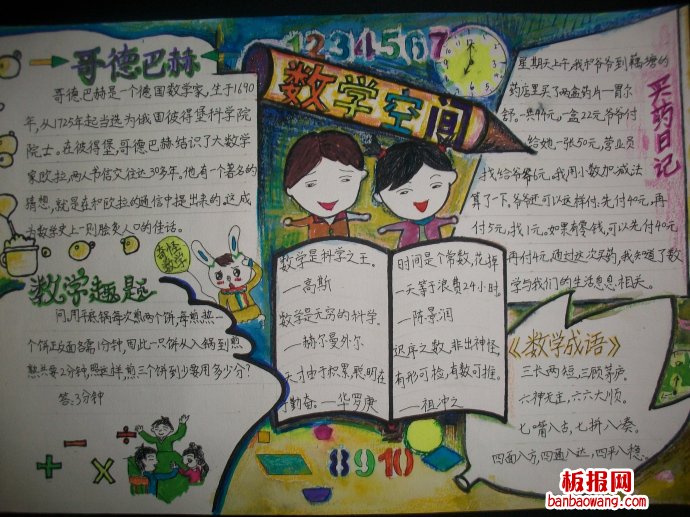 哥德巴赫
哥德巴赫是一个德国数学家,生于1690
年,从1725年起当选为俄国彼得堡科学院
院士。在彼得堡,哥德巴赫结识了大数学
家欧拉,两人书信交往达30多年。他有一个著名的
猜想,就是在和欧拉的通信中提出来的。这成
为数学史上一则脍炙人口的佳话。
奇怪
数学
数学趣题
问:用平底锅每次煎两个饼,每煎熟一
个饼正反面各需1分钟,因此一只饼从入锅到煎
熟共要2分钟,照这样,煎三个饼至少要用多少分?
答:3分钟
+ - × ÷
1234567
数学空间
数学是科学之王。
—高斯
数学是无穷的科学。
—赫尔曼外尔
天才由于积累,聪明在
于勤奋。—华罗庚
时间是个常数,花掉
一天等于浪费24小时。
—陈景润
迟序之数,非出神怪,
有形可检,有数可推。
—祖冲之
8910
买药日记
星期天上午,我和爷爷到
药店里买了两盒药片一胃尔
舒。一共44元,一盒22元爷爷付
给她一张50元,营业员
找给爷爷6元。我用小数加减法
算了一下。爷爷还可以这样付:先付40元,再
付5元,找1元。如果有零钱,可以先付40元
再付4元。通过这次买药,我知道了数
学与我们的生活息息相关。
《数学成语》
三长两短,三顾茅庐。
六神无主,六六大顺。
七嘴八舌,七拼八凑。
四面八方,四通八达,四平八稳。
板报网
banbaowang.com